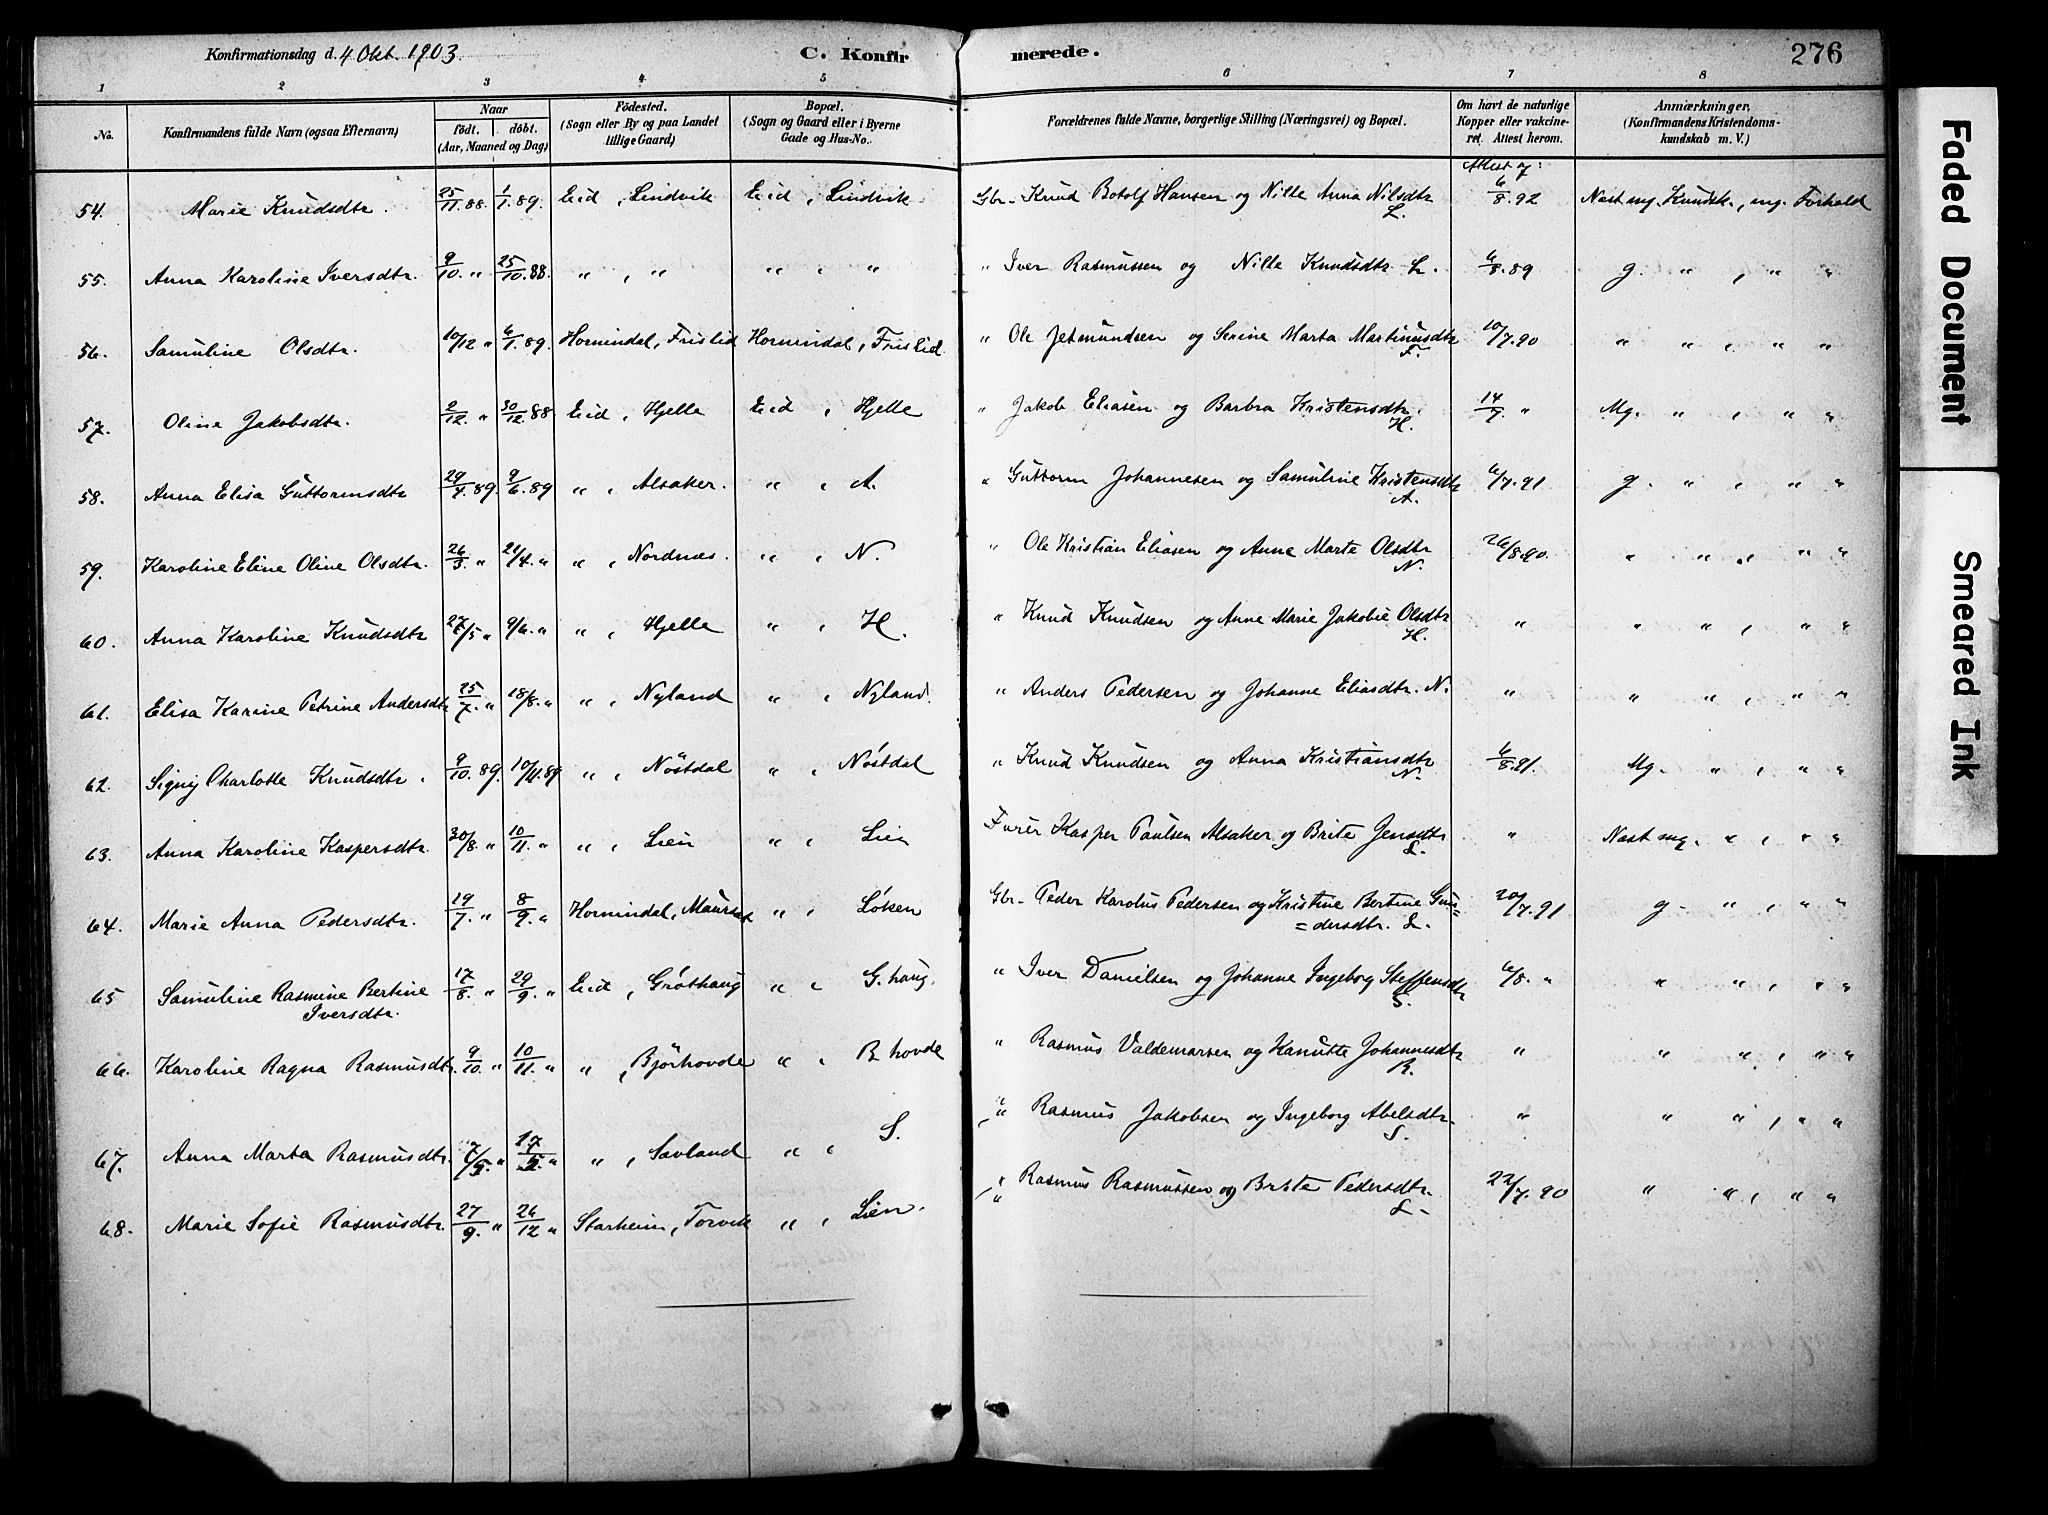 Konfirmationsdag d. 4 Okt. 1903. C. Konfirmerede. 276
1 2 3 4 5 6 7 8
No. Konfirmandens fulde Navn (ogsaa Efternavn) Naar födt. döbt. (Aar, Maaned og Dag) Födested. (Sogn eller By og paa Landet tillige Gaard) Bopæl. (Sogn og Gaard eller i Byerne Gade og Hus-No. Forældrenes fulde Navne, borgerlige Stilling (Næringsvei) og Bopæl. Om havt de naturlige Kopper eller vakcineret. Attest herom. Anmærkninger. (Konfirmandens Kristendomskundskab m. V.)
54. Marie Knudsdtr. 25/11.88. 1/1.89. Eid, Lindvik Eid, Lindvik Gbr. Knud Botolf Hansen og Nille Anna Nilsdtr L. 6/8.92 Næst mg. Kundsk., mg. Forhold
55. Anna Karoline Iversdtr. 9/10. " 25/10.88. " , " " , " " Iver Rasmussen og Nille Knudsdtr L. 6/8.89 g. " , " "
56. Samuline Olsdtr. 10/12 " 6/1.89. Hornindal, Frislid Hornindal, Frislid. " Ole Jetmundsen og Serine Marta Martinusdtr F. 10/7.90 " " , " "
57. Oline Jakobsdtr. 2/12. " 30/12.88 Eid, Hjelle Eid, Hjelle " Jakob Eliasen og Barbra Kristensdtr. H. 14/7 " Mg. " , " "
58. Anna Elisa Guttormsdtr 29/4.89. 9/6.89 " , Alsaker. " , A. " Guttorm Johannesen og Samuline Kristensdtr A. 6/7.91 g. " , " "
59. Karoline Eline Oline Olsdtr. 26/3. " 21/4. " " , Nordnes. " , N. " Ole Kristian Eliasen og Anne Marte Olsdtr N. 26/8.90. " " , " "
60. Anna Karoline Knudsdtr 27/5 " 9/6. " " , Hjelle " , H. " Knud Knudsen og Anne Marie Jakobie Olsdtr H. " " " , " "
61. Elisa Karine Petrine Andersdtr 25/7. " 18/8. " " , Nyland " , Nyland. " Anders Pedersen og Johanne Eliasdtr. N. " " " , " "
62. Signy Charlotte Knudsdtr. 9/10.89. 10/11.89 " , Nöstdal " , Nöstdal " Knud Knudsen og Anna Kristiansdtr N. 6/8.91. Mg. " , " "
63. Anna Karoline Kaspersdtr. 30/8. " 10/11. " " , Lien " , Lien Kasper Paulsen Alsaker og Brite Jensdtr L. " Næst mg. " , " "
64. Marie Anna Pedersdtr. 19/7. " 8/9. " Hornindal, Maurset " , Løken Gbr. Peder Karolus Pedersen og Kristine Bertine Gun=
=dersdtr. L. 20/7.91 g. " , " "
65 Samuline Rasmine Bertine
Iversdtr. 17/8. " 29/9. " Eid, Grøthaug " , G.haug. " Iver Danielsen og Johanne Ingeborg Steffensdtr 6/8. " " " , " "
66. Karoline Ragna Rasmusdtr. 9/10. " 10/11. " " , Björhovde " , B.hovde " Rasmus Valdemarsen og Kanutte Johannesdtr " " " , " "
67. Anna Marta Rasmusdtr. " , Savland " , S. " Rasmus Jakobsen og Ingeborg Abelsdtr. S. " " " , " "
68. Marie Sofie Rasmusdtr. 27/9. " 26/12 " Starheim, Torvik " , Lien. " Rasmus Rasmussen og Brite Pedersdtr. L. 22/7.90 " " , " "
Faded Document
Smeared Ink